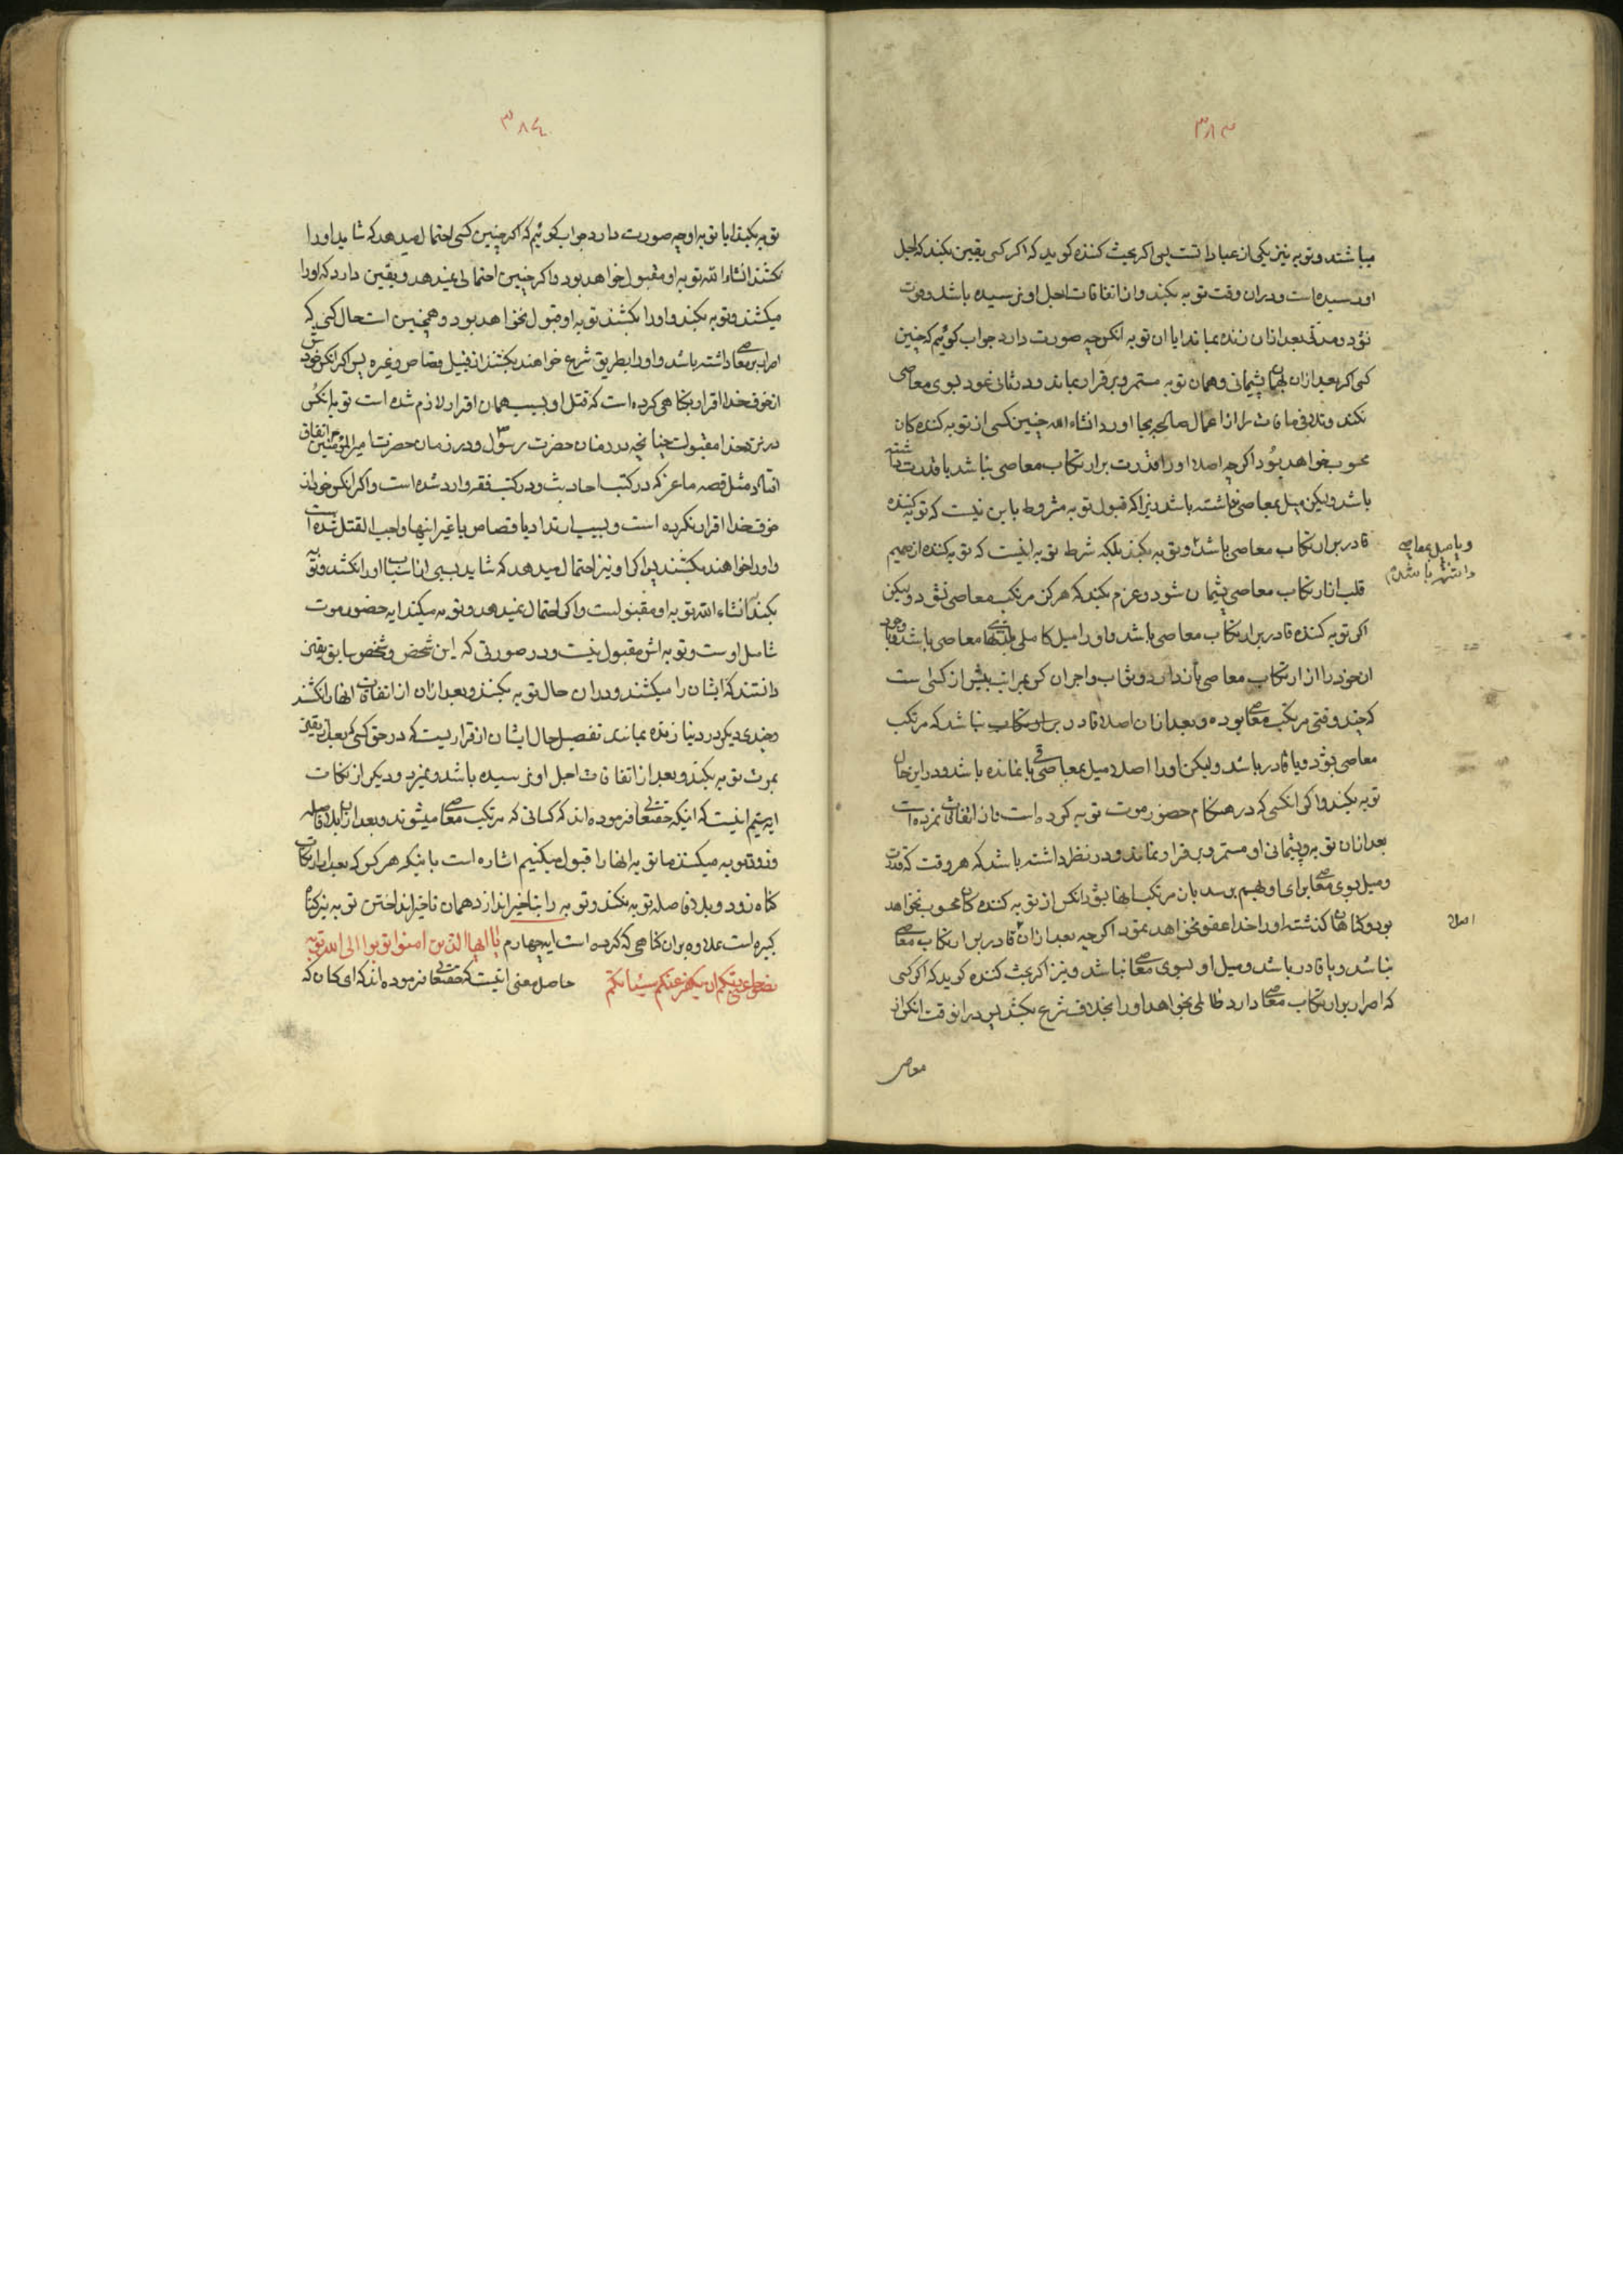 ۳۸۳
میباشند و توبه نیز یکی از عباداتست پس اگر بحث کننده گوید که اگر کسی یقین بکند که اجل
او رسیده است و در ان وقت توبه بکند و از اتفاقات اجل او نرسیده باشد و فوت
نشود و مدتی بعد از ان زنده بماند ایا ان توبه انکس چه صورت دارد جواب گوئیم که چنین
کسی اگر بعد از ان بهمان پشیمانی و همان توبه مستمر و برقرار بماند و در ثانی عود بسوی معاصی
نکند و تلافی مافات را از اعمال صالحه بجا اورد انشاء الله چنین کسی از توبه کننده کان
محسوب خواهد بود اگرچه اصلا او را قدرت بر ارتکاب معاصی نباشد یا قدرت داشته
باشد ولیکن میل بمعاصی نداشته باشد زیرا که قبول توبه مشروط باین نیست که توبه کننده
قادر بر ارتکاب معاصی باشد و توبه بکند بلکه شرط توبه اینست که توبه کننده از صمیم
ویا میل بمعاصی
داشته باشد
قلب از ارتکاب معاصی پشیمان شود و عزم بکند که هرگز مرتکب معاصی نشود ولیکن
اگر توبه کننده قادر بر ارتکاب معاصی باشد و او را میل کاملی بمعاصی باشد و با وجود
ان خود را از ارتکاب معاصی باز دارد ثواب و اجر ان کس بمراتب بیش از کسی است
که چند وقتی مرتکب معاصی بوده و بعد از ان اصلا قادر بر ارتکاب نباشد که مرتکب
معاصی بشود و یا قادر باشد ولیکن او را اصلا میل بمعاصی باقی نمانده باشد و در این حال
توبه بکند و اگر انکسی که در هنکام حضور موت توبه کرده است و از اتفاقات نمرده است
بعد از ان توبه و پشیمانی او مستمر و برقرار نماند و در نظر داشته باشد که هر وقت که قدرت
و میل بسوی معاصی برای او بهم برسد بان مرتکب انها بشود انکس از توبه کننده کان محسوب نخواهد
بود و کناهان کذشته او را خدا عفو نخواهد نمود اگرچه بعد از ان قادر بر ارتکاب معاصی
اصلا
نباشد و یا قادر باشد و میل او بسوی معاصی نباشد و نیز اگر بحث کننده گوید که اگر کسی
که اصرار بر ارتکاب معاصی دارد ظالمی بخواهد او را بخلاف شرع بکشد پس در انوقت انکس از
معاصی
۳۸٤
توبه بکند ایا توبه او چه صورت دارد جواب گوئیم که اگر چنین کسی احتمال میدهد که شاید او را
نکشند انشاء الله توبه او مقبول خواهد بود و اگر چنین احتمالی نمیدهد و یقین دارد که او را
میکشند و توبه بکند و او را بکشند توبه او قبول نخواهد بود و همچنین است حال کسی که
اصرار بر معاصی داشته باشد و او را بطریق شرع خواهند بکشند از قبیل قصاص و غیره پس اگر انکس خود
از خوف خدا اقرار بکناهی کرده است که قتل او بسبب همان اقرار لازم شده است توبه انکس
در نزد خدا مقبولست چنانچه در زمان حضرت رسول و در زمان حضرت امیر المؤمنین اتفاق
افتاد مثل قصه ماعز که در کتب احادیث و در کتب فقه وارد شده است و اگر انکس خود از
خوف خدا اقرار نکرده است و بسبب ارتداد یا قصاص یا غیر اینها واجب القتل شده است
و او را خواهند بکشند پس اگر او نیز احتمال میدهد که شاید بسببی از اسباب او را نکشند و توبه
بکند انشاء الله توبه او مقبولست و اگر احتمال نمیدهد و توبه میکند ایه حضور موت
شامل اوست و توبه اش مقبول نیست و در صورتی که این شخص و شخص سابق یقین
دانستند که ایشان را میکشند و در ان حال توبه بکنند و بعد از ان از اتفاقات انها را نکشند
و چندی دیکر در دنیا زنده بمانند تفصیل حال ایشان از قراریست که در حق کسی که بعد از یقین
بموت توبه بکند و بعد از اتفاقات اجل او نرسیده باشد و نمیرد و دیکر از نکات
ایه سیم اینست که اینکه حقتعالی فرموده اند که کسانی که مرتکب معاصی میشوند و بعد از ان بلافاصله
و زود توبه میکنند ما توبه انها را قبول میکنیم اشاره است باینکه هر کس که بعد از ارتکاب
کناه زود و بلافاصله توبه نکند و توبه را بتاخیر اندازد همان تاخیر انداختن توبه نیز کناه
کبیره است علاوه بر ان کناهی که کرده است ایه چهارم یا ایها الذین امنوا توبوا الی الله توبة
نصوحا عسی ربکم ان یکفر عنکم سیئاتکم حاصل معنی اینست که حقتعالی فرموده اند که ای کسان که